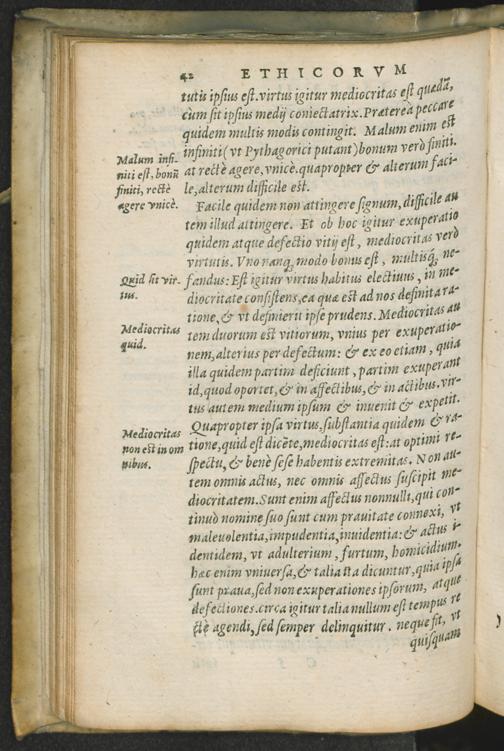 42 ETHICORVM
tutis ipsius est. virtus igitur mediocritas est quedã,
cum sit ipsius medij coniectatrix. Præterea peccare
quidem multis modis contingit. Malum enim est
infiniti (vt Pythagorici putant) bonum verò finiti.
at rectè agere, vnicè. quapropter & alterum faci-
le, alterum difficile est.
Malum infi-
niti est, bonũ
finiti, rectè
agere vnicè.
Facile quidem non attingere signum, difficile au
tem illud attingere. Et ob hoc igitur exuperatio
quidem atque defectio vitij est, mediocritas verò
virtutis. Vno nanq; modo bonus est, multisq́; ne-
fandus: Est igitur virtus habitus electiuus, in me-
diocritate consistens, ea quæ est ad nos definita ra-
tione, & vt definierit ipse prudens. Mediocritas au
tem duorum est vitiorum, vnius per exuperatio-
nem, alterius per defectum: & ex eo etiam, quia
illa quidem partim deficiunt, partim exuperant
id, quod oportet, & in affectibus, & in actibus. vir-
tus autem medium ipsum & inuenit & expetit.
Quid sit vir-
tus.
Mediocritas
quid.
Quapropter ipsa virtus, substantia quidem & ra-
tione, quid est dicẽte, mediocritas est: at optimi re-
spectu, & benè sese habentis extremitas. Non au-
tem omnis actus, nec omnis affectus suscipit me-
diocritatem. Sunt enim affectus nonnulli, qui con-
tinuò nomine suo sunt cum prauitate connexi, vt
maleuolentia, impudentia, inuidentia: & actus i-
dentidem, vt adulterium, furtum, homicidium.
hæc enim vniuersa, & talia ita dicuntur, quia ipsa
sunt praua, sed non exuperationes ipsorum, atque
defectiones. circa igitur talia nullum est tempus re
ctè agendi, sed semper delinquitur. neque fit, vt
quisquam
Mediocritas
non est in om
nibus.